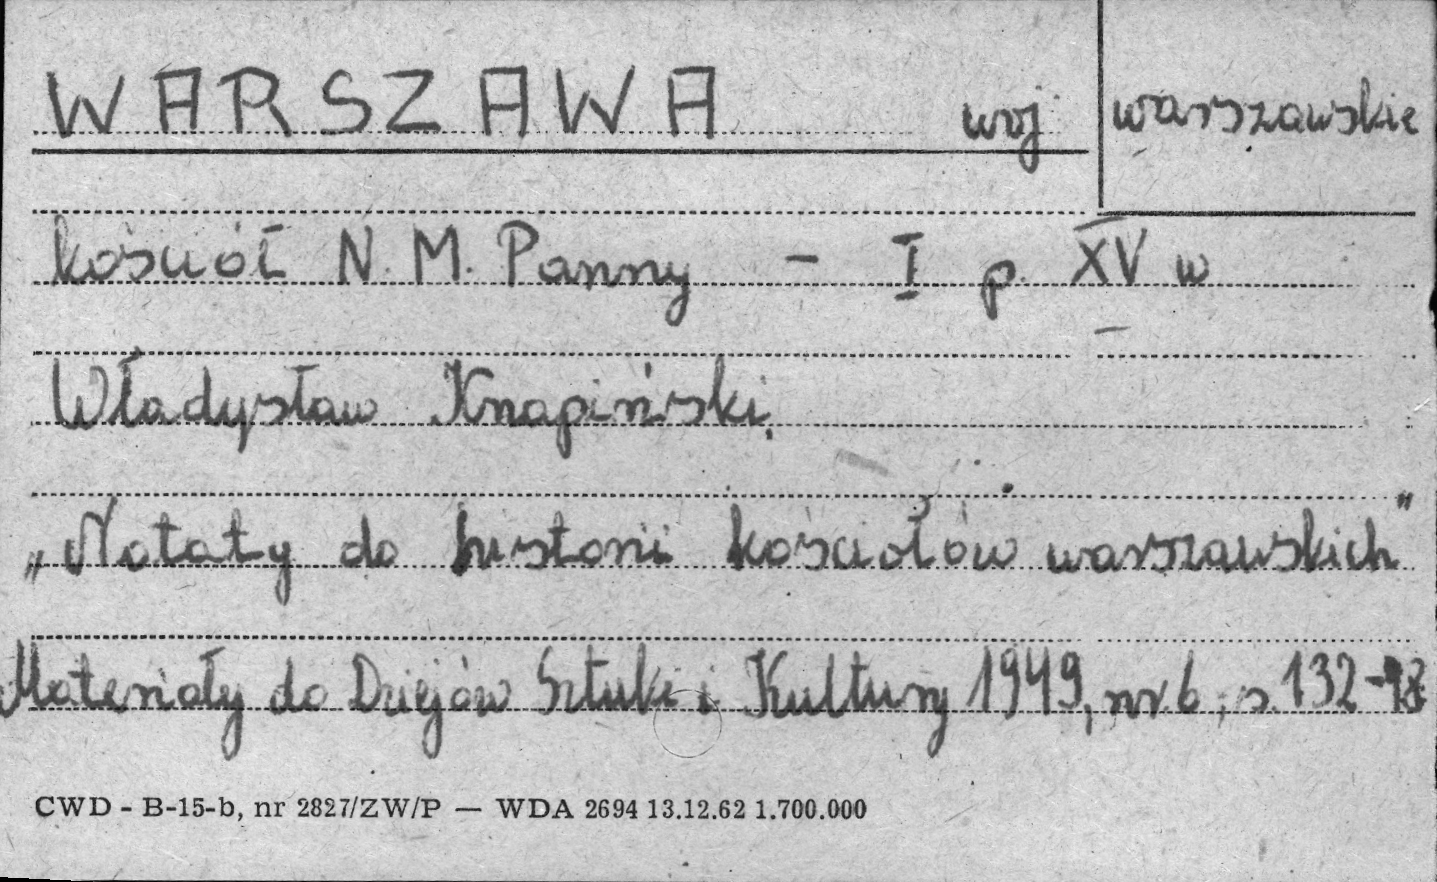 WARSZAWA woj warszawskie
kościół N. M. Panny - I p. XV w
Władysław Knapiński,
„Notaty do historii kościołów warszawskich"
Materiały do Dziejów Sztuki i Kultury 1949, nr. 6, s. 132-
CWD - B-15-b, nr 2827/ZW/P — WDA 2694 13.12.62 1.700.000